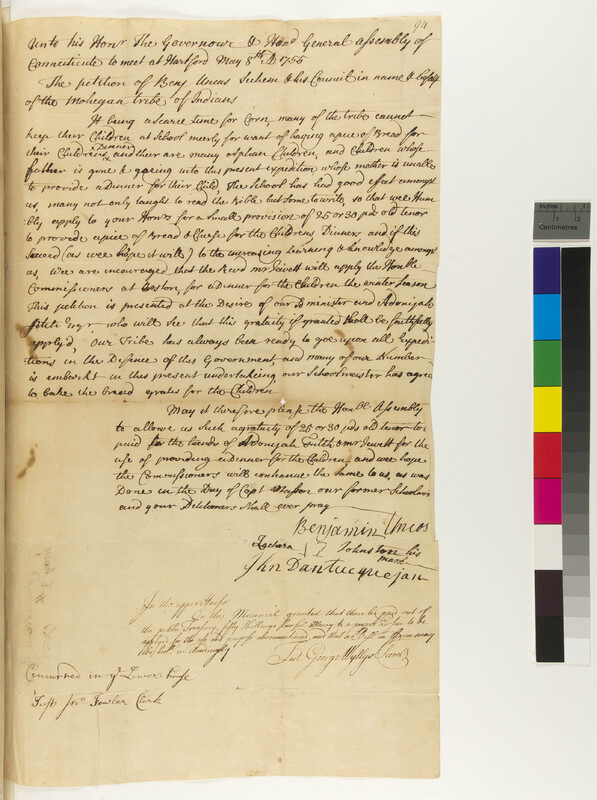 94
Unto his Honr The Governour & Hond General assembly of
Connecticute to meet at Hartford May 8th AD 1756
The petition of Benj Uncus Sachem & his Council in name & behalf
of the Mohegan tribe of Indians
It being a scarce time for Corn, many of the tribe cannot
keep their Children at School meerly for want of having a piece of Bread for
their Childrens Dinner, and their are many orphan Children, and Children whose
father is gone & going into this present expedition whose mother is unable
to provide a dinner for their Child. The School has had good effect amongst
us, many not only taught to read the bible but some to write, so that wee Hum
bly apply to your Honrs for a small provision of 25 or 30 pds old tenor
to provide a piece of Bread & Cheese for the Childrens Dinner, and if this
Succeed (as wee hope it will) to the increasing Learning & knowledge amongst
us, Wee are incouraged that the Revd mr Jewett will apply the Honble
Commissioners at Boston, for a dinner for the Children the winter Season
This petition is presented at the Desire of our minister and Adonijah
Fitch Esqr, who will see that this gratuity if granted Shall be faithfully
apply'd, Our Tribe has always been ready to goe upon all Expedi
tions in the Diffence of this Government, and many of our Number
is embarkt in this present undertaking, our Schoolmeister has agreed
to bake the bread gratis for the Children
May it therefore please the Honble Assembly
to allow us such a gratuity of 25 or 30 pds old tenor to
paid to the hands of Adonijah Fitch & mr Jewett for the
use of providing a dinner for the Children, and wee hope
the Commissioners will continue the same to us, as was
Done in the Day of Capt Masson our former School
and your Petitioners Shall ever pray
Benjamin Uncos
Zachara Johnston his
mark
Jhn Dantucquejan
In the upper House
On this Memorial granted that there be paid out of
the public Treasury, fifty Shillings Lawful Money to
applied for the use and purpose abovementioned, and that a Bill in form
this bill in
Test George Wyllys Secrety
Concurred in ye Lower house
Test Jno Fowler Clerk
Inches
Centimetres